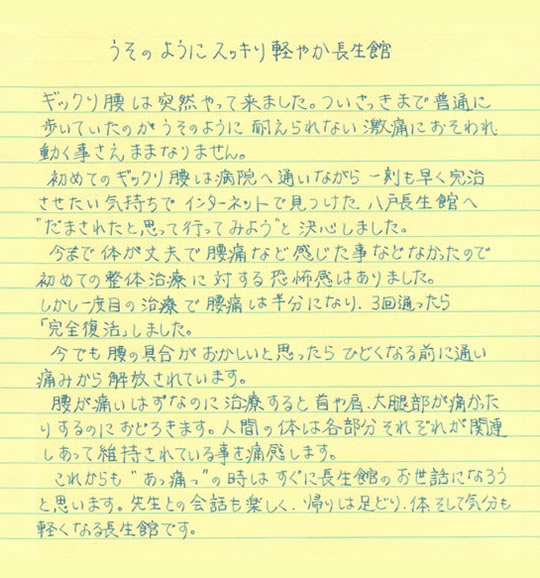 うそのようにスッキリ軽やか長生館
ギックリ腰は突然やって来ました。ついさっきまで普通に
歩いていたのがうそのように耐えられない激痛におそわれ
動く事さえままなりません。
初めてのギックリ腰は病院へ通いながら一刻も早く完治
させたい気持ちでインターネットで見つけた八戸長生館へ
“だまされたと思って行ってみよう”と決心しました。
今まで体が丈夫で腰痛など感じた事などなかったので
初めての整体治療に対する恐怖感はありました。
しかし一度目の治療で腰痛は半分になり、3回通ったら
「完全復活」しました。
今でも腰の具合がおかしいと思ったらひどくなる前に通い
痛みから解放されています。
腰が痛いはずなのに治療すると首や肩、大腿部が痛かた
りするのにおどろきます。人間の体は各部分それぞれが関連
しあって維持されている事を痛感します。
これからも“あっ痛っ”の時はすぐに長生館のお世話になろう
と思います。先生との会話も楽しく、帰りは足どり、体、そして気分も
軽くなる長生館です。